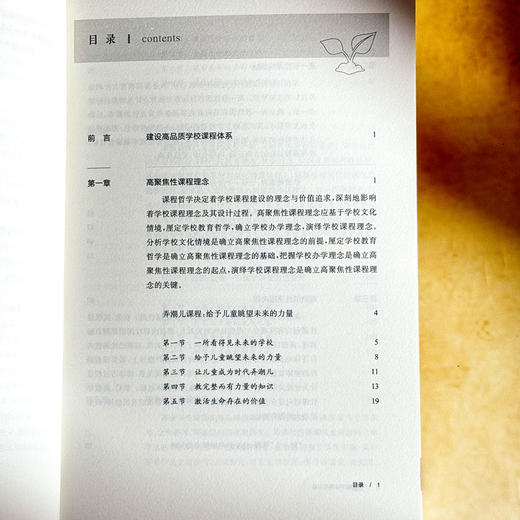 目录 | contents
前 言 建设高品质学校课程体系 1
第一章 高聚焦性课程理念 1
课程哲学决定着学校课程建设的理念与价值追求,深刻地影响
着学校课程理念及其设计过程。高聚焦性课程理念应基于学校文化
情境,厘定学校教育哲学,确立学校办学理念,演绎学校课程理念。
分析学校文化情境是确立高聚焦性课程理念的前提,厘定学校教育
哲学是确立高聚焦性课程理念的基础,把握学校办学理念是确立高
聚焦性课程理念的起点,演绎学校课程理念是确立高聚焦性课程理
念的关键。
弄潮儿课程:给予儿童眺望未来的力量 4
第一节 一所看得见未来的学校 5
第二节 给予儿童眺望未来的力量 8
第三节 让儿童成为时代弄潮儿 11
第四节 教完整而有力量的知识 13
第五节 激活生命存在的价值 19
目录 / 1